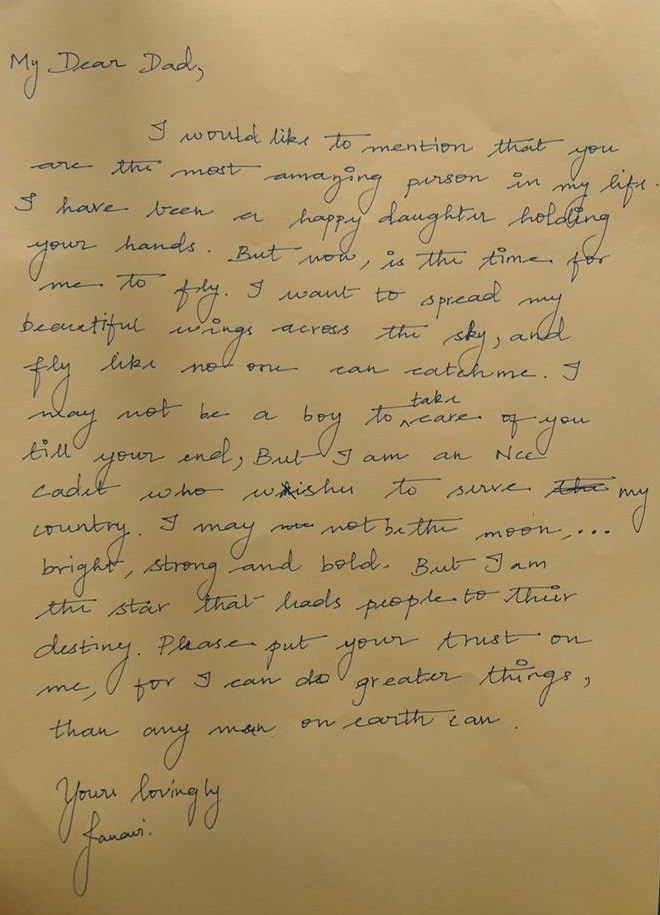 My Dear Dad,
I would like to mention that you
are the most amazing person in my life.
I have been a happy daughter holding
your hands. But now, is the time for
me to fly. I want to spread my
beautiful wings across the sky, and
fly like no one can catch me. I
may not be a boy to take care of you
till your end, But I am an Ncc
cadet who wishes to serve the my
country. I may not be the moon,...
bright, strong and bold. But I am
the star that leads people to their
destiny. Please put your trust on
me, for I can do greater things,
than any man on earth can.
Yours lovingly
Janavi.